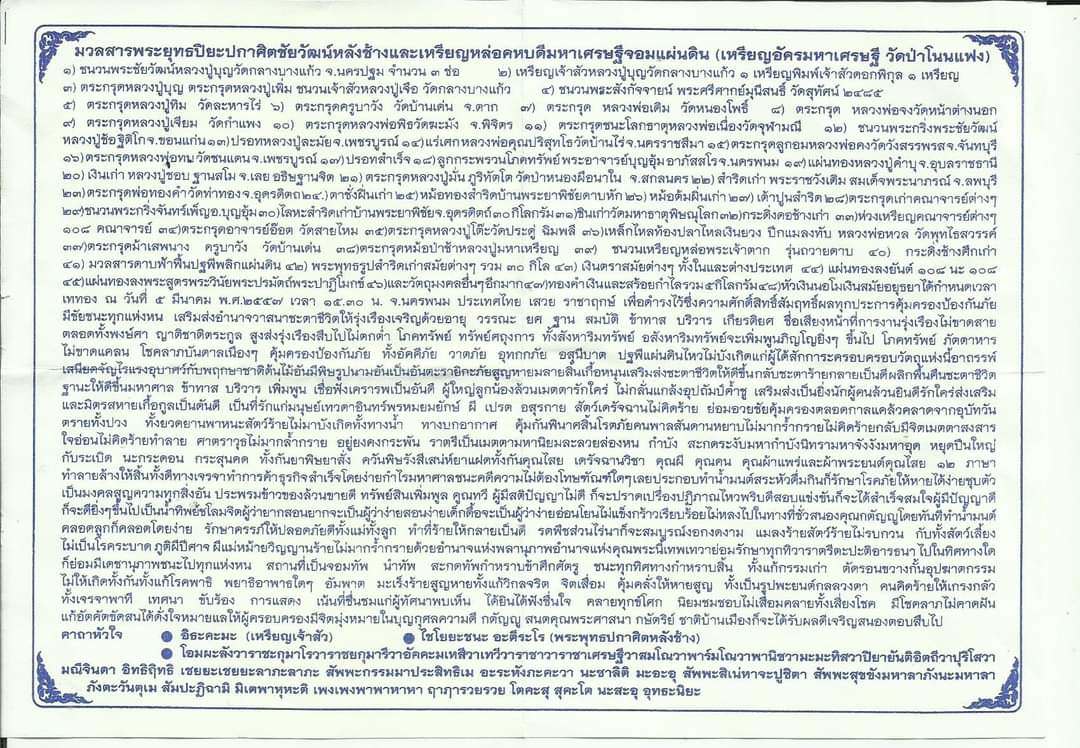 มวลสารพระยุทธปิยะปกาศิตชัยวัฒน์หลังช้างและเหรียญหล่อคหบดีมหาเศรษฐีจอมแผ่นดิน (เหรียญอัครมหาเศรษฐี วัดป่าโนนแฟง)
๑) ชนวนพระชัยวัฒน์หลวงปู่บุญวัดกลางบางแก้ว จ.นครปฐม จำนวน ๓ ช่อ ๒) เหรียญเจ้าสัวหลวงปู่บุญวัดกลางบางแก้ว ๑ เหรียญพิมพ์เจ้าสัวดอกพิกุล ๑ เหรียญ
๓) ตระกรุดหลวงปู่บุญ ตระกรุดหลวงปู่เพิ่ม ชนวนเจ้าสัวหลวงปู่เจือ วัดกลางบางแก้ว ๔) ชนวนพระสังกัจจายน์ พระศรีศากย์มุนีสนธิ์ วัดสุทัศน์ ๒๔๘๕
๕) ตระกรุดหลวงปู่ทิม วัดละหารไร่ ๖) ตระกรุดครูบาวัง วัดบ้านเด่น จ.ตาก ๗) ตระกรุด หลวงพ่อเดิม วัดหนองโพธิ์ ๘) ตระกรุด หลวงพ่อจงวัดหน้าต่างนอก
๙) ตระกรุดหลวงปู่เจียม วัดกำแพง ๑๐) ตระกรุดหลวงพ่อพิธวัดฆะมัง จ.พิจิตร ๑๑) ตระกรุดชนะโลกธาตุหลวงพ่อเนื่องวัดจุฬามณี ๑๒) ชนวนพระกริ่งพระชัยวัฒน์
หลวงปู่ชือฐิติโกจ.ขอนแก่น๑๓)ปรอทหลวงปู่ละมัยจ.เพชรบูรณ์ ๑๔)แร่เตศกหลวงพ่อคุณปริสุทโธวัดบ้านไร่จ.นครราชสีมา ๑๕)ตระกรุดลูกอมหลวงพ่อคงวัดวังสรรพรสจ.จันทบุรี
๑๖)ตระกรุดหลวงพ่อทบวัดชนแดนจ.เพชรบูรณ์ ๑๗)ปรอทสำเร็จ ๑๘)ลูกกระพรวนโภคทรัพย์ พระอาจารย์บุญอุ้ม อาภัสสโรจ.นครพนม ๑๙)แผ่นทองหลวงปู่คำบุจ.อุบลราชธานี
๒๐)เงินเก่า หลวงปู่ชอบ ฐานสโม จ.เลย อธิษฐานจิต ๒๑)ตระกรุดหลวงปู่มั่น ภูริทัตโต วัดป่าหนองผือนาใน จ.สกลนคร ๒๒)สำริดเก่า พระราชวังเดิม สมเด็จพระนาภรณ์ จ.ลพบุรี
๒๓)ตระกรุดพ่อทองดำวัดท่าทองจ.อุตรดิตถ์๒๔)ตาชั่งฝิ่นเก่า ๒๕)หม้อทองสำริดบ้านพระยาพิชัยดาบหัก ๒๖)หม้อต้มฝิ่นเก่า ๒๗)เต้าปูนสำริด ๒๘)ตระกรุดเก่าคณาจารย์ต่างๆ
๒๙)ชนวนพระกริ่งจันทร์เพ็ญอ.บุญอุ้ม๓๐)โลหะสำริดเก่าบ้านพระยาพิชัยจ.อุตรดิตถ์ ๓๐กิโลกรัม๓๑)ชินเก่าวัดมหาธาตุพิษณุโลก๓๒)กระดิ่งคอช้างเก่า ๓๓)ห่วงเหรียญคณาจารย์ต่างๆ
๑๐๘ คณาจารย์ ๓๔)ตระกรุดอาจารย์อ๊อต วัดสายไหม ๓๕)ตระกรุดหลวงปู่โต๊ะวัดประดู่ ฉิมพลี ๓๖)เหล็กไหลท้องปลาไหลเงินยวง ปีกแมลงทับ หลวงพ่อหวล วัดพุทธไธสวรรค์
๓๗)ตระกรุดม้าเสพนาง ครูบาวัง วัดบ้านเด่น ๓๘)ตระกรุดหมื่อป่าช้าหลวงปู่มหาเหรียญ ๓๙) ชนวนเหรียญหล่อพระเจ้าตาก รุ่นถวายดาบ ๔๐) กระดิ่งช้างศึกเก่า
๔๑) มวลสารดาบฟ้าฟื้นปฐพีพลิกแผ่นดิน ๔๒) พระพุทธรูปสำริดเก่าสมัยต่างๆ รวม ๓๐ กิโล ๔๓) เงินตราสมัยต่างๆ ทั้งในและต่างประเทศ ๔๔) แผ่นทองลงยันต์ ๑๐๘ นะ ๑๐๘
๔๕)แผ่นทองลงพระสูตรพระวินัยพระปรมัตถ์พระปาฏิโมกข์ ๔๖)และวัตถุมงคลอื่นๆอีกมาก๔๗)ทองคำเงินและสร้อยกำไลรวม๕กิโลกรัม๔๘)หัวเงินนอโมเงินสมัยอยุธยาได้กำหนดเวลา
เททอง ณ วันที่ ๕ มีนาคม พ.ศ.๒๕๕๗ เวลา ๑๕.๓๐ น. จ.นครพนม ประเทศไทย เสวย ราชาฤกษ์ เพื่อดำรงไว้ซึ่งความศักดิ์สิทธิ์สัมฤทธิ์ผลทุกประการคุ้มครองป้องกันภัย
มีชัยชนะทุกแห่งหน เสริมส่งอำนาจวาสนาชะตาชีวิตให้รุ่งเรืองเจริญด้วยอายุ วรรณะ ยศ ฐาน สมบัติ ข้าทาส บริวาร เกียรติยศ ชื่อเสียงหน้าที่การงานรุ่งเรืองไม่ขาดสาย
ตลอดทั้งพงษ์ศา ญาติชาติตระกูล สูงส่งรุ่งเรืองสืบไปไม่ตกต่ำ โภคทรัพย์ ทรัพย์ศฤงคาร ทั้งสังหาริมทรัพย์ อสังหาริมทรัพย์จะเพิ่มพูนภิญโญยิ่งๆ ขึ้นไป โภคทรัพย์ ภัตตาหาร
ไม่ขาดแคลน โชคลาภบันดาลเนื่องๆ คุ้มครองป้องกันภัย ทั้งอัคคีภัย วาตภัย อุทกกภัย อสุนีบาต ปฐพีแผ่นดินไหวไม่บังเกิดแก่ผู้ได้สักการะครอบครอบวัตถุแห่งนี้อาถรรพ์
เสนียดจัญไรแรงอุบาศว์กับพฤกษาชาติต้นไม้อันมีพิษรูปนามอันเป็นอันตะรายิกะภัยสูญหายมลายสิ้นเกื้อหนุนเสริมส่งชะตาชีวิตให้ดีขึ้นกลับชะตาร้ายกลายเป็นดีผลิกฟื้นคืนชะตาชีวิต
ฐานะให้ดีขึ้นมหาศาล ข้าทาส บริวาร เพิ่มพูน เชื่อฟังเคารารพเป็นอันดี ผู้ใหญ่ลูกน้องล้วนเมตตารักใคร่ ไม่กลั่นแกล้งอุปถัมป์ค้ำชู เสริมส่งเป็นยิ่งนักผู้คนล้วนยินดีรักใคร่ส่งเสริม
และมิตรสหายเกื้อกูลเป็นตันดี เป็นที่รักแก่มนุษย์เทวดาอินทร์พรหมยมยักษ์ ผี เปรต อสุรกาย สัตว์เดรัจฉานไม่คิดร้าย ย่อมอวยชัยคุ้มครองตลอดกาลแคล้วคลาดจากอุบัทวัน
ตรายทั้งปวง ทั้งยวดยานพาหนะสัตว์ร้ายไม่มาบังเกิดทั้งทางน้ำ ทางบกอากาศ คุ้มกันพินาศสิ้นโรคภัยคนพาลสันดานหยาบไม่มากร้ำกรายไม่คิดร้ายกลับมีจิตเมตตาสงสาร
ใจอ่อนไม่คิดร้ายทำลาย ศาตราวุธไม่มากล้ำกราย อยู่ยงคงกระพัน ราตรีเป็นเมตตามหานิยมละลวยส่องหน กำบัง สะกดระงับมหากำบังนิทรามหาจังงังมหาอุด หยุดปืนใหญ่
กับระเบิด นะกระดอน กระสุนคด ทั้งกันยาพิษยาสั่ง ควันพิษรังสีเสน่ห์ยาแฝดทั้งกันคุณไสย เดรัจฉานวิชา คุณผี คุณคน คุณผ้าแพร่และผ้าพระยนต์คุณไสย ๑๒ ภาษา
ทำลายล้างให้สิ้นทั้งดีทางเจรจาทำการค้าธุรกิจสำเร็จโดยง่ายกำไรมหาศาลชนะคดีความไม่ต้องโทษทัณฑ์ใดๆเลยประกอบทำน้ำมนต์สระหัวดื่มกินก็รักษาโรคภัยให้หายได้ง่ายชุบตัว
เป็นมงคลสูญความทุกสิ่งอัน ประพรมข้าวของล้วนขายดี ทรัพย์สินเพิ่มพูล คูณทวี ผู้มีสติปัญญาไม่ดี ก็จะปราดเปรื่องปฏิภาณไหวพริบดีสอบแข่งขันก็จะได้สำเร็จสมใจผู้มีปัญญาดี
ก็จะดียิ่งๆขึ้นไปเป็นน้ำทิพย์ชโลมจิตผู้ว่ายากสอนยากจะเป็นผู้ว่าง่ายสอนง่ายเด็กดื้อจะเป็นผู้ว่าง่ายอ่อนโยนไม่แข็งกร้าวเรียบร้อยไม่หลงไปในทางที่ชั่วสนองคุณกตัญญูโดยทันทีทำน้ำมนต์
คลอดลูกก็คลอดโดยง่าย รักษาครรภ์ให้ปลอดภัยดีทั้งแม่ทั้งลูก ทำที่ร้ายให้กลายเป็นดี รดพืชส่วนไร่นาก็จะสมบูรณ์งอกงดงาม แมลงร้ายสัตว์ร้ายไม่รบกวน กับทั้งสัตว์เลี้ยง
ไม่เป็นโรคระบาด ภูติผีปีศาจ ผีแม่หม้ายวิญญานร้ายไม่มากร้ำกรายด้วยอำนาจแห่งพลานุภาพอำนาจแห่งคุณพระนี้เทพเทวาย่อมรักษาทุกทิวาราตรีตะปะติอารธนา ไปในทิศทางใด
ก็ย่อมมีเดชานุภาพชนะไปทุกแห่งหน สถานที่เป็นจอมทัพ นำทัพ สะกดทัพกำหราบข้าศึกศัตรู ชนะทุกทิศทางกำหราบสิ้น ทั้งแก้กรรมเก่า ตัดรอนขวางกั้นอุปฆาตกรรม
ไม่ให้เกิดทั้งกันทั้งแก้โรคพาธิ พยาธิอาพาธใดๆ อัมพาต มะเร็งร้ายสูญหายทั้งแก้วิกลจริต จิตเสื่อม คุ้มคลั่งให้หายสูญ ทั้งเป็นรูปพระยนต์กลลวงตา คนคิดร้ายให้เกรงกลัว
ทั้งเจรจาพาที เทศนา ขับร้อง การแสดง เน้นที่ชื่นชมแก่ผู้ทัศนาพบเห็น ได้ยินได้ฟังชื่นใจ คลายทุกข์โศก นิยมชมชอบไม่เสื่อมคลายทั้งเสี่ยงโชค มีโชคลาภไม่คาดฝัน
แก้อัตคัดขัดสนได้ดั่งใจหมายแลให้ผู้ครอบครองมีจิตมุ่งหมายในบุญกุศลความดี กตัญญู สนตคุณพระศาสนา กษัตริย์ ชาติบ้านเมืองก็จะได้รับผลดีเจริญสนองตอบสืบไป
คาถาหัวใจ ● อิธะคะมะ (เหรียญเจ้าสัว) ● ไชโยยะชนะ อะตีระโร (พระพุทธปกาศิตหลังช้าง)
● โอมมะลังวาราชะกุมาโรวาราชยกุมารีวาอัคคะมเหสีวาเทวีวาราชาวาราชาเศรษฐีวาสมโณวาพาร์มโณวาพานิชวามะมะทิสวาปิยายันติอิตถีวาปุริโสวา
มณีจินดา อิทธิฤทธิ เชยยะเชยยะลาภะลาภะ สัพพะกรรมมาประสิทธิเม อะระหังภะคะวา นะชาลิติ มะอะอุ สัพพะสิเนหาจะปูชิตา สัพพะสุขขังมหาลาภังนะมหาลา
ภังตะวันตุเม สัมปะฏิฉามิ มิเตพาหุหะติ เพงเพงพาพาหาหา ฤาภารวยรวย โตคะสุ สุคะโต นะสะอุ อุทธะนิยะ